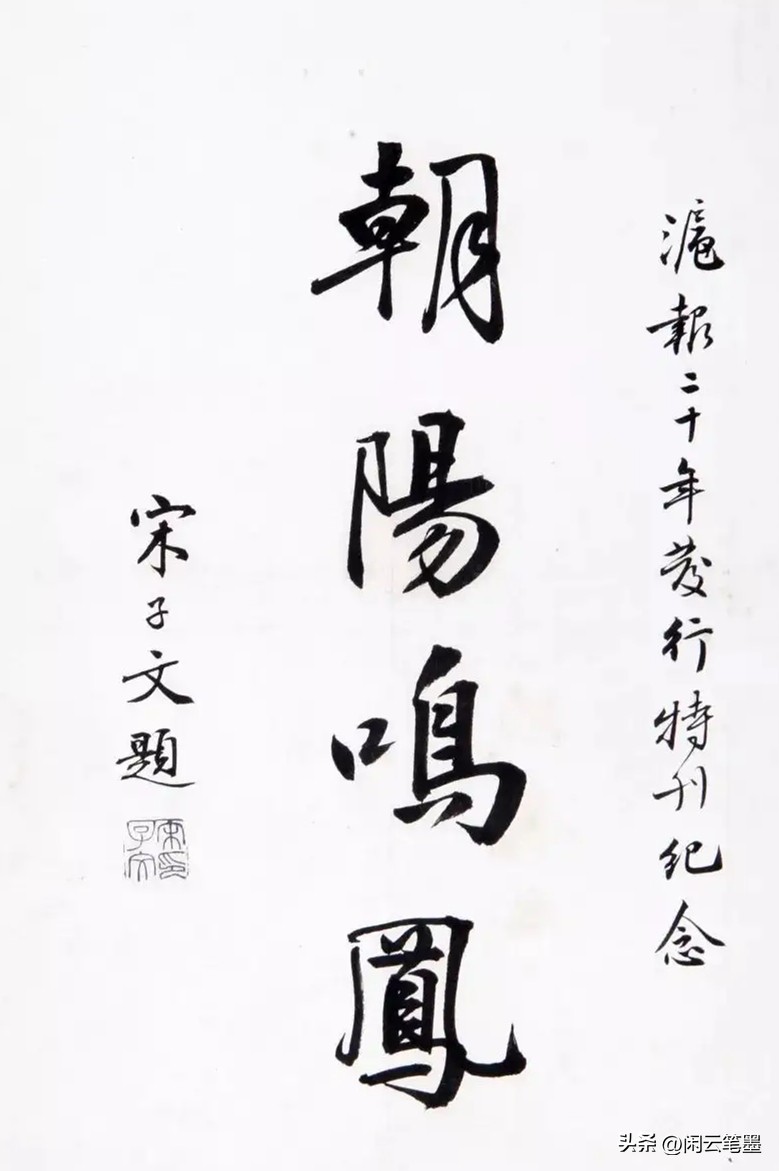 滬報二十年發行特刊紀念
朝陽鳴鳳
宋子文題
宋子文印
头条 @闲云笔墨